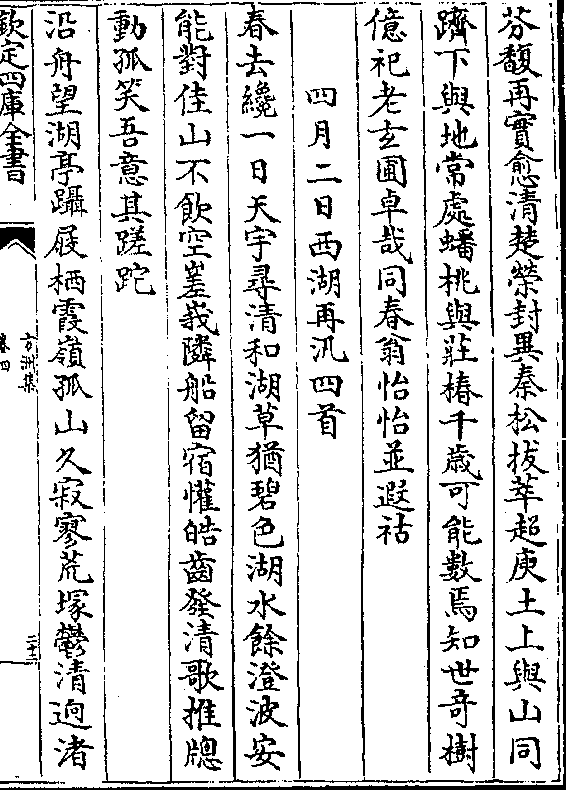 芬馥再實愈清楚榮封異秦松拔萃超庾土上與山同
躋下與地常處蟠桃與莊椿千歳可能數焉知世竒樹
億祀老玄圃卓哉同春翁怡怡並遐祜
四月二日西湖再汎四首
春去纔一日天宇尋清和湖草猶碧色湖水餘澄波安
能對佳山不飲空嵳峩隣船留宿懽皓齒發清歌推牕
動孤笑吾意其蹉跎
沿舟望湖亭躡屐栖霞嶺孤山久寂寥荒塚鬱清迥渚
欽定四庫全書
方洲集
卷四
二十二